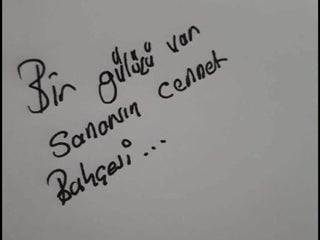 Bir gülüşü var
Sanarsın cennet
Bahçesi...